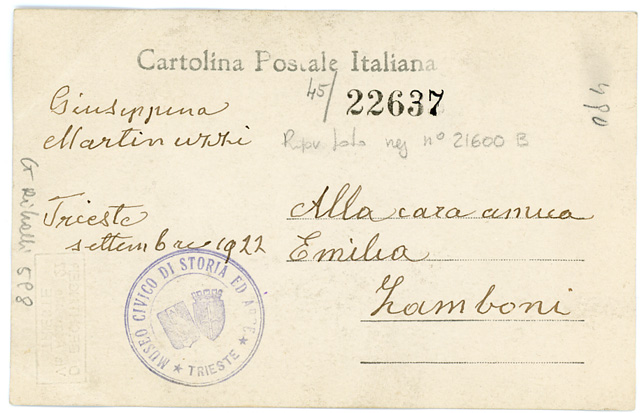 Cartolina Postale Italiana
45/ 22637
Giuseppina
Martinuzzi
Ripr foto neg n° 21600 B
480
Trieste
settembre 1922
Alla cara amica
Emilia
Zamboni
MUSEO CIVICO DI STORIA ED ARTE
★ TRIESTE ★
598